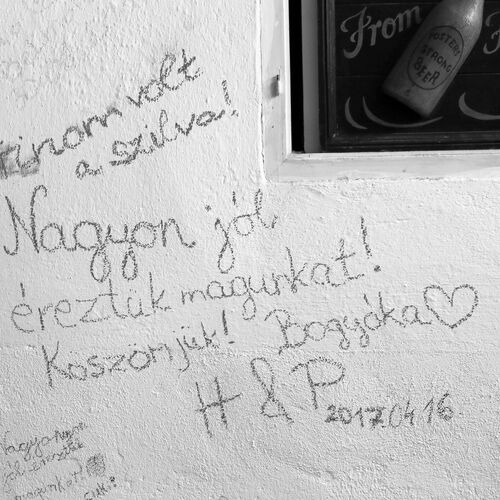 From
FOSTERS
STRONG
BEER
Finom volt
a szilva!
Nagyon jól
éreztük magunkat!
Köszönjük! Bogyóka♡
H & P 2017.04.16.
Nagyon
jól éreztük
magunkat!